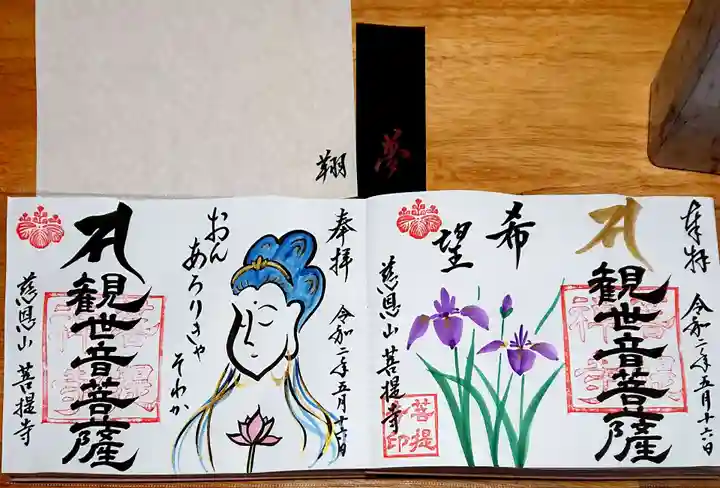 翔
夢
奉拝
令和二年五月十六日
おん
あろりきゃ
そわか
観世音菩薩
慈恩山 菩提寺
奉拝
令和二年五月十六日
観世音菩薩
希
望
慈恩山 菩提寺
菩提
印